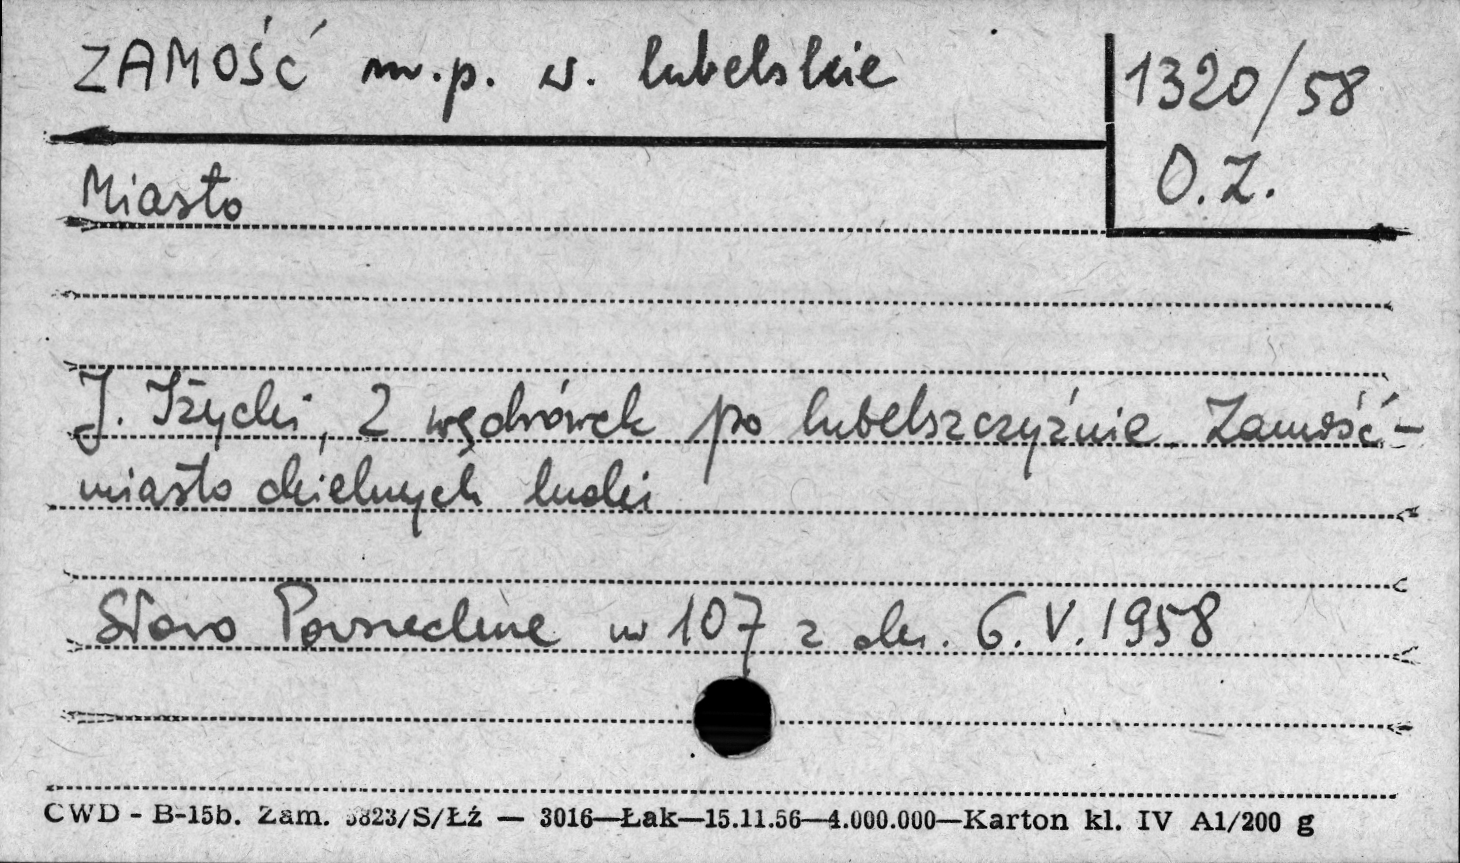 ZAMOŚĆ m.p. w. lubelskie
1320/58
O.Z.
Miasto
J. Iżycki, Z wędrówek po lubelszczyźnie. Zamość –
miasto dzielnych ludzi
Słowo Powszechne nr 107 z dn. 6.V.1958
CWD - B-15b. Zam. 3823/S/Łź — 3016—Łak—15.11.56—4.000.000—Karton kl. IV A1/200 g